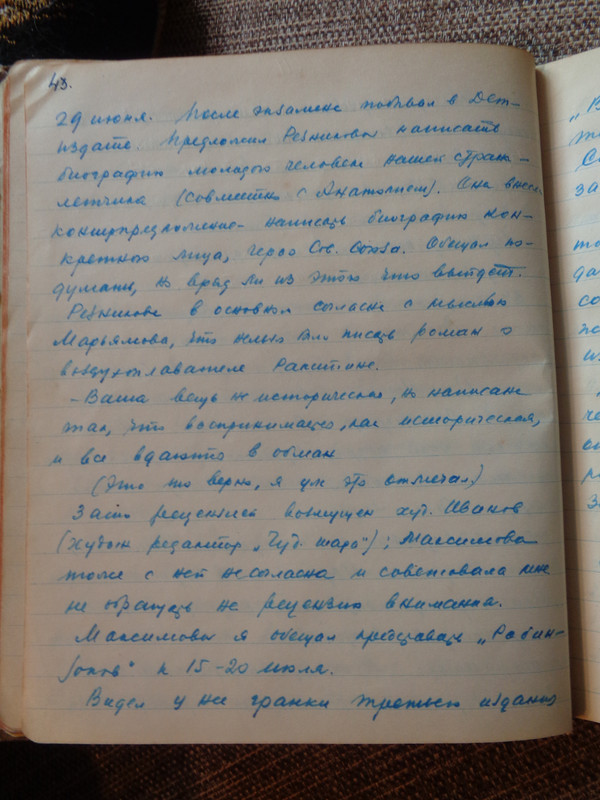 43.
29 июня. После экзамена побывал в Дет-
издате. Предложил Резниковой написать
биографию молодого человека нашей страны -
летчика (совместно с Анатолием). Она внесла
контрпредложение - написать биографию кон-
кретного лица, героя Сов. Союза. Обещал по-
думать, но вряд ли из этого что выйдет.
Резникова в основном согласна с мыслью
Марьямова, что нельзя было писать роман о
воздухоплавателе Ракитине.
- Ваша вещь не историческая, но написана
так, что воспринимается, как историческая,
и все вдаются в обман
(Это то верно, я уж это отмечал)
Зато рецензией возмущен худ. Иванов
(худож редактор „Чуд. шара"); Максимова
тоже с ней не согласна и советовала мне
не обращать на рецензию внимания.
Максимовой я обещал представить „Робин-
зонов" к 15-20 июля.
Видел у нее гранки третьего издания
„В
за
то
да
со
по
из
че